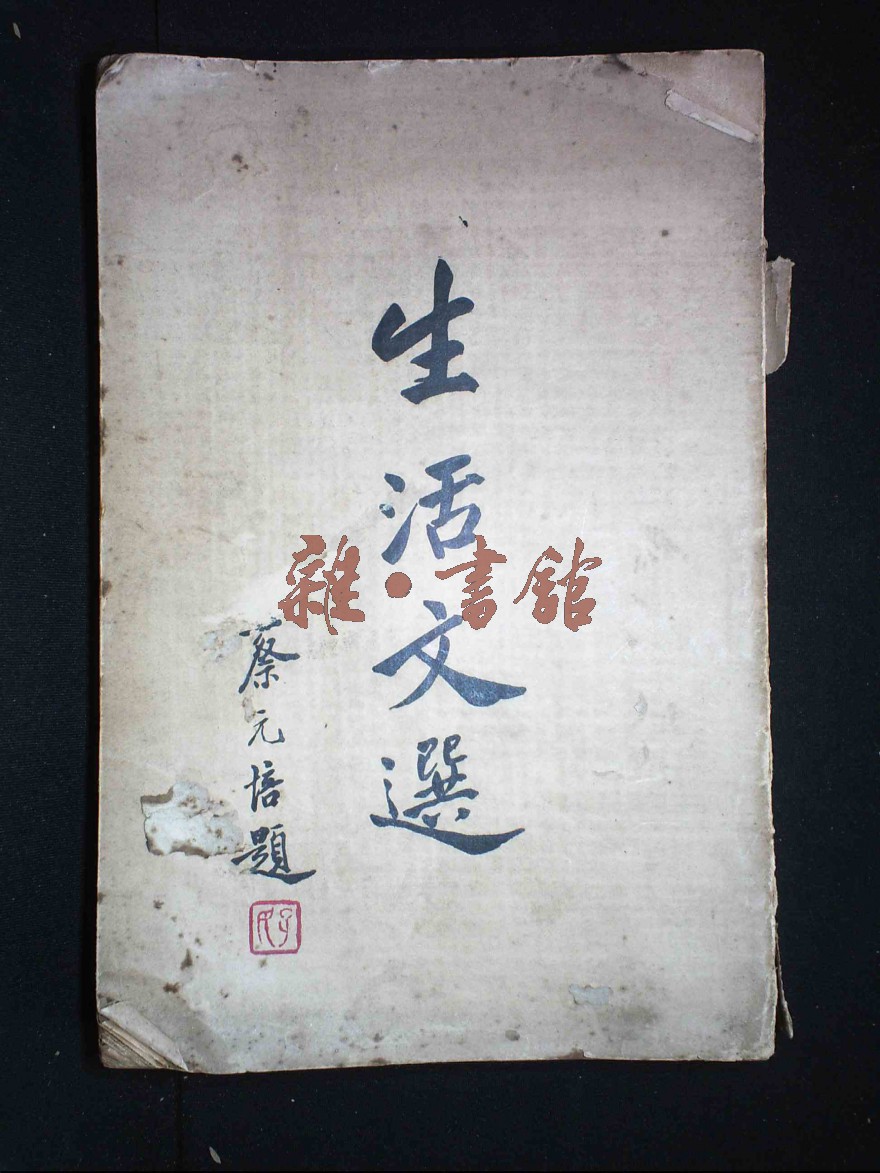 生活文選
蔡元培題
雜·書館